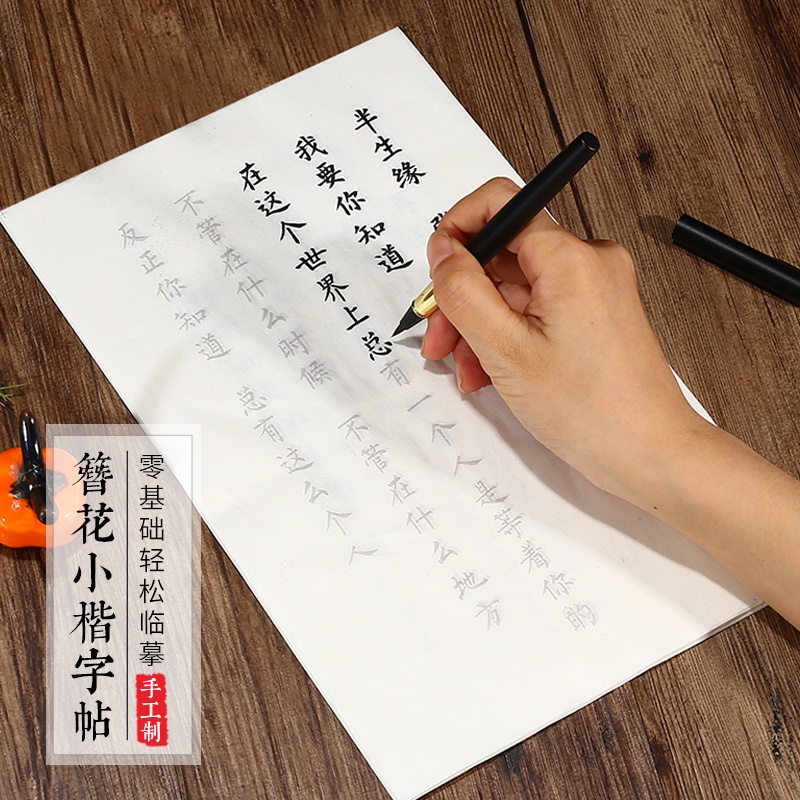 半生缘
我要你知道
在这个世界上总有一个人是等着你的
不管在什么时候 不管在什么地方
反正你知道 总有这么个人
簪花小楷字帖
零基础轻松临摹
手工制